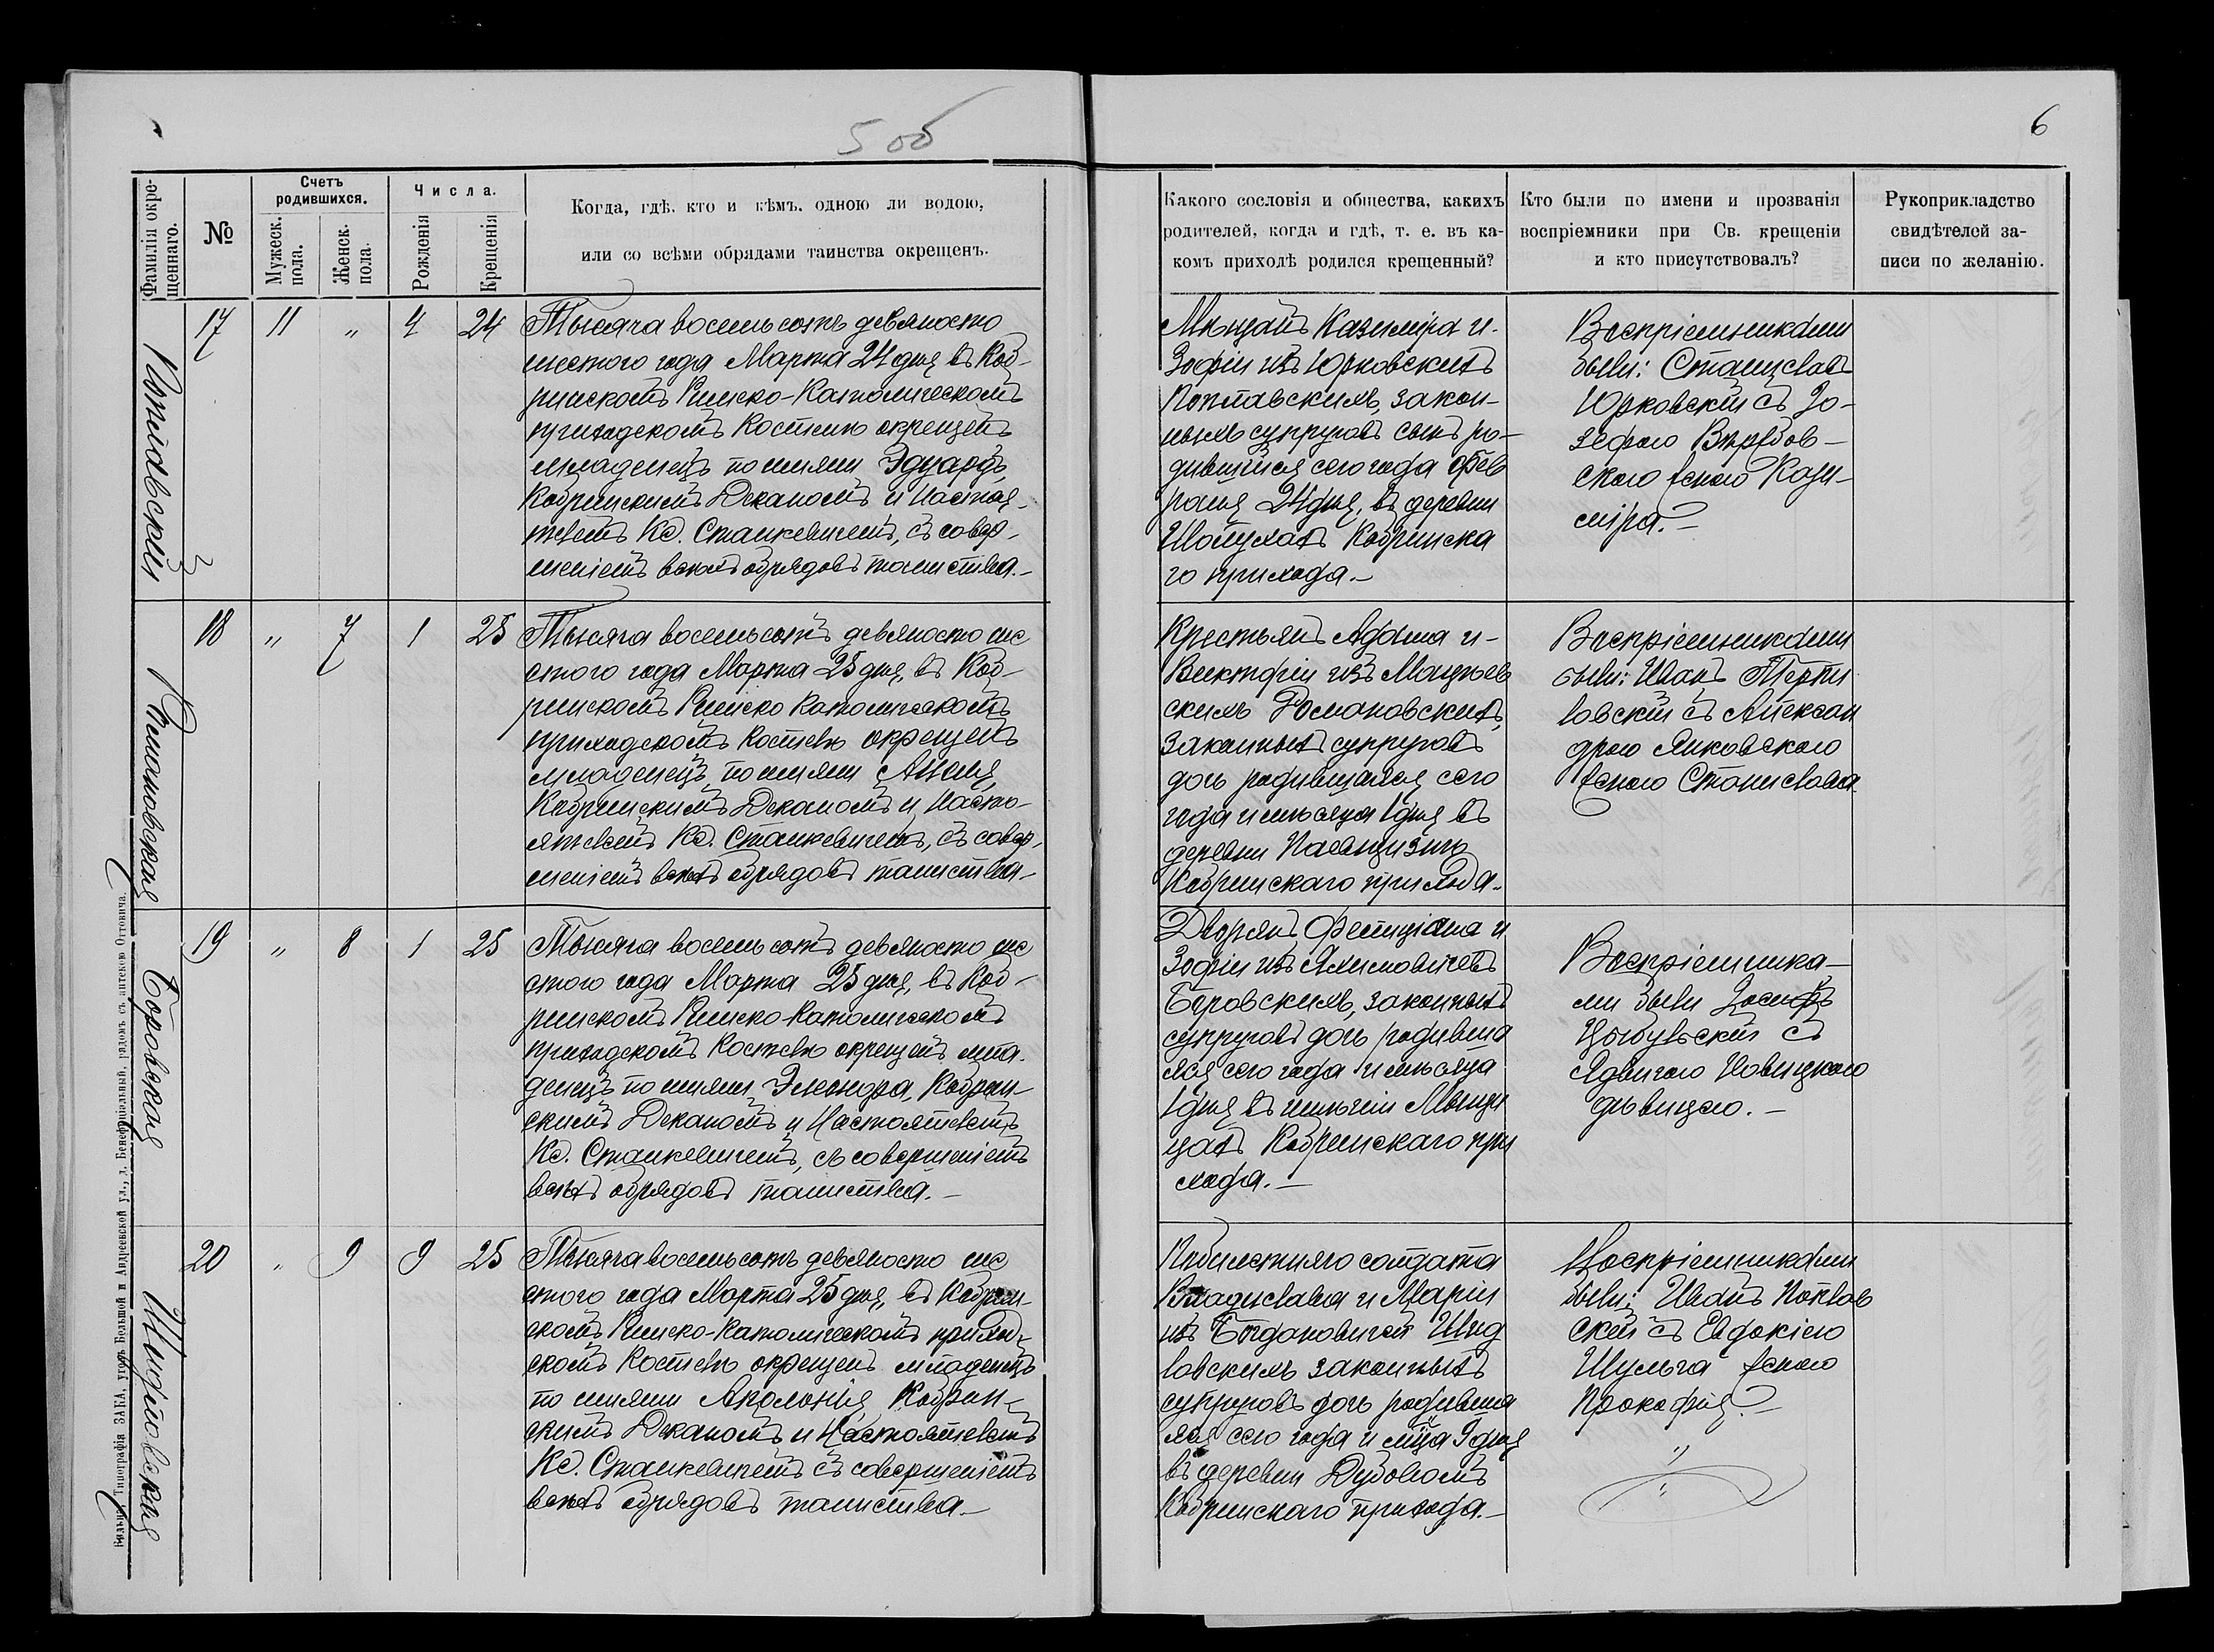 5 об
6
Фамилія окре-
щеннаго.
№
Счетъ
родившихся.
Мужеск.
пола.
Женск.
пола.
Числа.
Рожденія
Крещенія
Когда, гдѣ, кто и кѣмъ, одною ли водою,
или со всѣми обрядами таинства окрещенъ.
Какого сословія и общества, какихъ
родителей, когда и гдѣ, т. е. въ ка-
комъ приходѣ родился крещенный?
Кто были по имени и прозванія
воспріемники при Св. крещеніи
и кто присутствовалъ?
Рукоприкладство
свидѣтелей за-
писи по желанію.
Поплавскій
17 11 „ 4 24
Тысяча восемь сотъ девяносто
шестого года Марта 24 дня въ Коб-
ринскомъ Римско-Католическомъ
приходскомъ Костелѣ окрещенъ
младенецъ по имяни Эдуардъ,
Кобринскимъ Деканомъ и Настоя-
телемъ Кс. Станкевичемъ, съ совер-
шеніемъ всѣхъ обрядовъ таинства.-
Мѣщанъ Казиміра и-
Зофіи изъ Юрковскихъ
Поплавскихъ, закон-
ныхъ супруговъ сынъ ро-
дившійся сего года Фев
раля 24 дня, въ деревни
Кобринска
го прихода.-
Воспріемниками
были: Станиславъ
Юрковскій съ Іо-
зефою Вѣрбов-
скою женою Кази-
міра.-
Романовская
18 „ 7 1 25
Тысяча восемьсотъ девяносто ше
стого года Марта 25 дня, въ Коб-
ринскомъ Римско Католическомъ
приходскомъ Костелѣ окрещенъ
младенецъ по имяни Анеля,
Кобринскимъ Деканомъ и Насто-
ятелемъ Кс. Станкевичемъ, съ совер-
шеніемъ всѣхъ обрядовъ таинства-
Крестьянъ Адама и-
Викторіи изъ Мацѣев
скихъ Романовскихъ,
законныхъ супруговъ
дочь родившаяся сего
года и мѣсяца 1 дня въ
деревни
Кобринскаго прихода.-
Воспріемниками
были: Иванъ
ловскій съ Алексан
дрою Янковскою
женою Станислава
Боровская
19 „ 8 1 25
Тысяча восемь сотъ девяносто ше
стого года Марта 25 дня, въ Коб-
ринскомъ Римско-Католическомъ
приходскомъ Костелѣ окрещенъ мла-
денецъ по имяни Элеонора, Кобрин-
скимъ Деканомъ и Настоятелемъ
Кс. Станкевичемъ, съ совершеніемъ
всѣхъ обрядовъ таинства.-
Дворянъ Фелиціана и
Зофіи изъ Яхимовичевъ
Боровскихъ, законныхъ
супруговъ дочь родивша
яся сего года и мѣсяца
1 дня въ имѣніи
Кобринскаго при
хода.-
Воспріемника-
ми были Іосифъ
Цыбульскій съ
Ядвигою Новицкою
дѣвицею.-
Шидловская
20 „ 9 9 25
Тысяча восемь сотъ девяносто ше
стого года Марта 25 дня, въ Кобрин-
скомъ Римско-Католическомъ приход-
скомъ Костелѣ окрещенъ младенецъ
по имяни Аполонія, Кобрин-
скимъ Деканомъ и Настоятелемъ
Кс. Станкевичемъ съ совершеніемъ
всѣхъ обрядовъ таинства.-
солдата
Владислава и Маріи
изъ Богдановичей Шид
ловскихъ законныхъ
супруговъ дочь родивша
яся сего года и мца 9 дня
въ деревни Дубовомъ
Кобринскаго прихода.-
Воспріемниками
были: Иванъ Поплав
скій съ Евдокіею
Шульга женою
Прокофія.-
Вильна. Типографія ЗАКА, уголъ Большой и Андреевской ул., д. Бенефиціальный, рядомъ съ аптекою Оттовича.